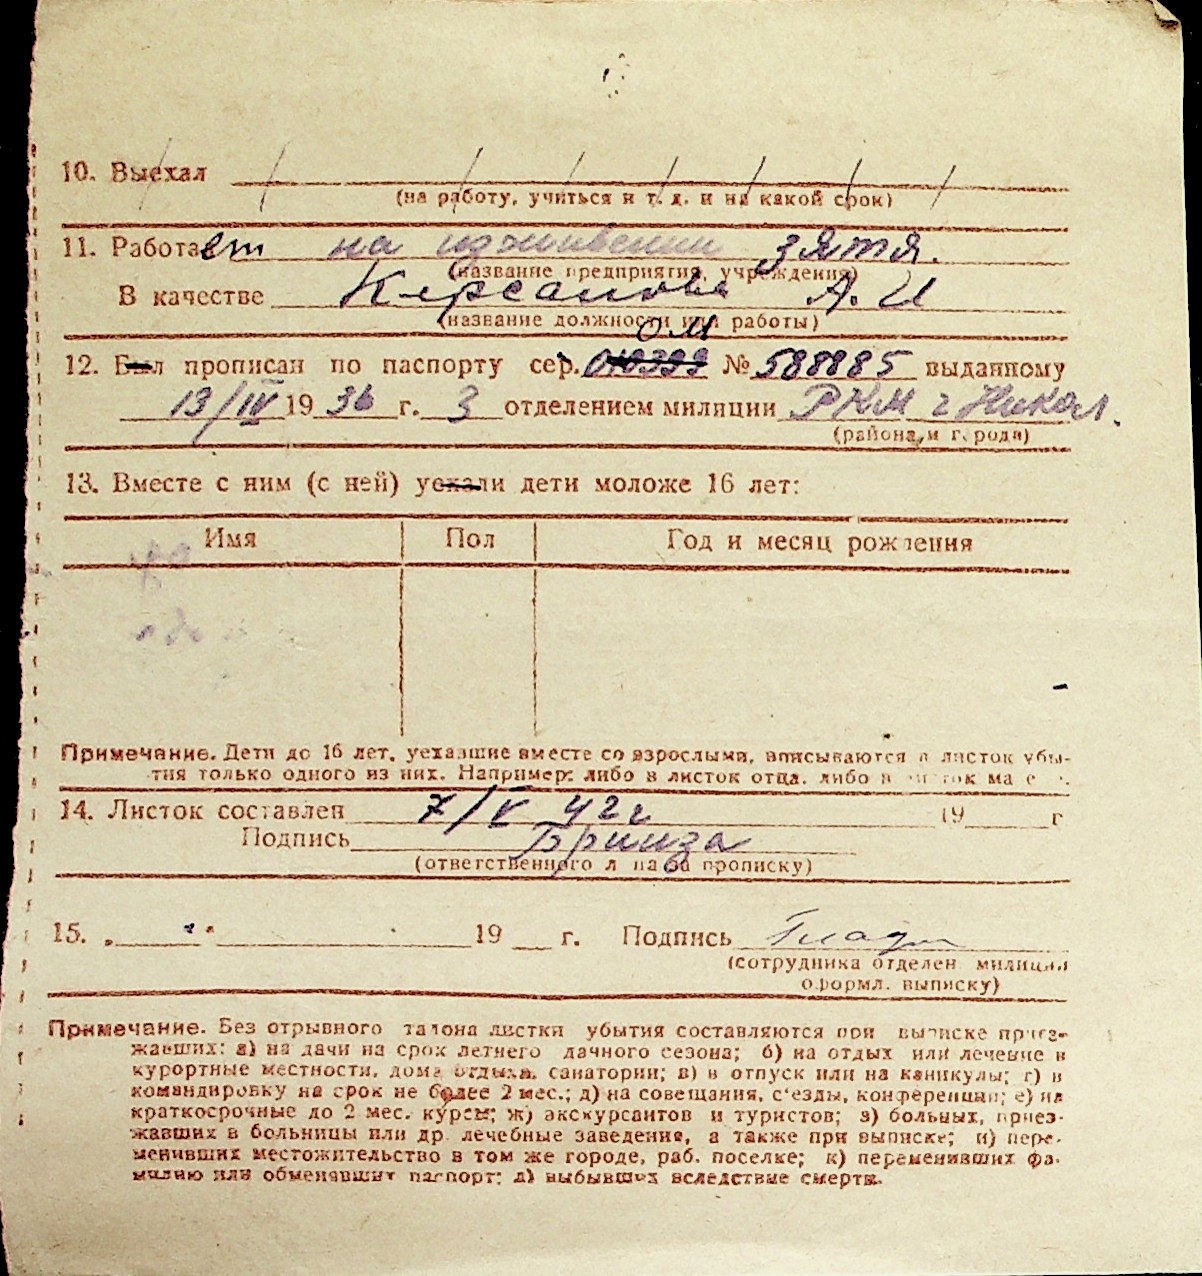 10. Выехал
(на работу, учиться и т. д. и на какой срок)
11. Работает на иждивении зятя.
(название предприятия, учреждения)
В качестве Керсанова А. И
(название должности или работы)
ОМ
12. Был прописан по паспорту сер. 010399 № 588885 выданному
13/IV 1936 г. 3 отделением милиции РКМ г Никол.
(района и города)
13. Вместе с ним (с ней) уехали дети моложе 16 лет:
Имя Пол Год и месяц рождения
Примечание. Дети до 16 лет, уехавшие вместе со взрослыми, вписываются в листок убы-
тия только одного из них. Например: либо в листок отца, либо в листок ма
14. Листок составлен 7/V 42 г 19 г
Подпись Бринза
(ответственного лица за прописку)
15. „ " 19 г. Подпись
(сотрудника отделен милиции
оформл. выписку)
Примечание. Без отрывного талона листки убытия составляются при выписке приез-
жавших: а) на дачи на срок летнего дачного сезона; б) на отдых или лечение в
курортные местности, дома отдыха, санатории; в) в отпуск или на каникулы; г) в
командировку на срок не более 2 мес.; д) на совещания, с'езды, конференции; е) на
краткосрочные до 2 мес. курсы; ж) экскурсантов и туристов; з) больных, приез-
жавших в больницы или др. лечебные заведения, а также при выписке; и) пере-
менивших местожительство в том же городе, раб. поселке; к) переменивших фа-
милию или обменявших паспорт; л) выбывших вследствие смерти.